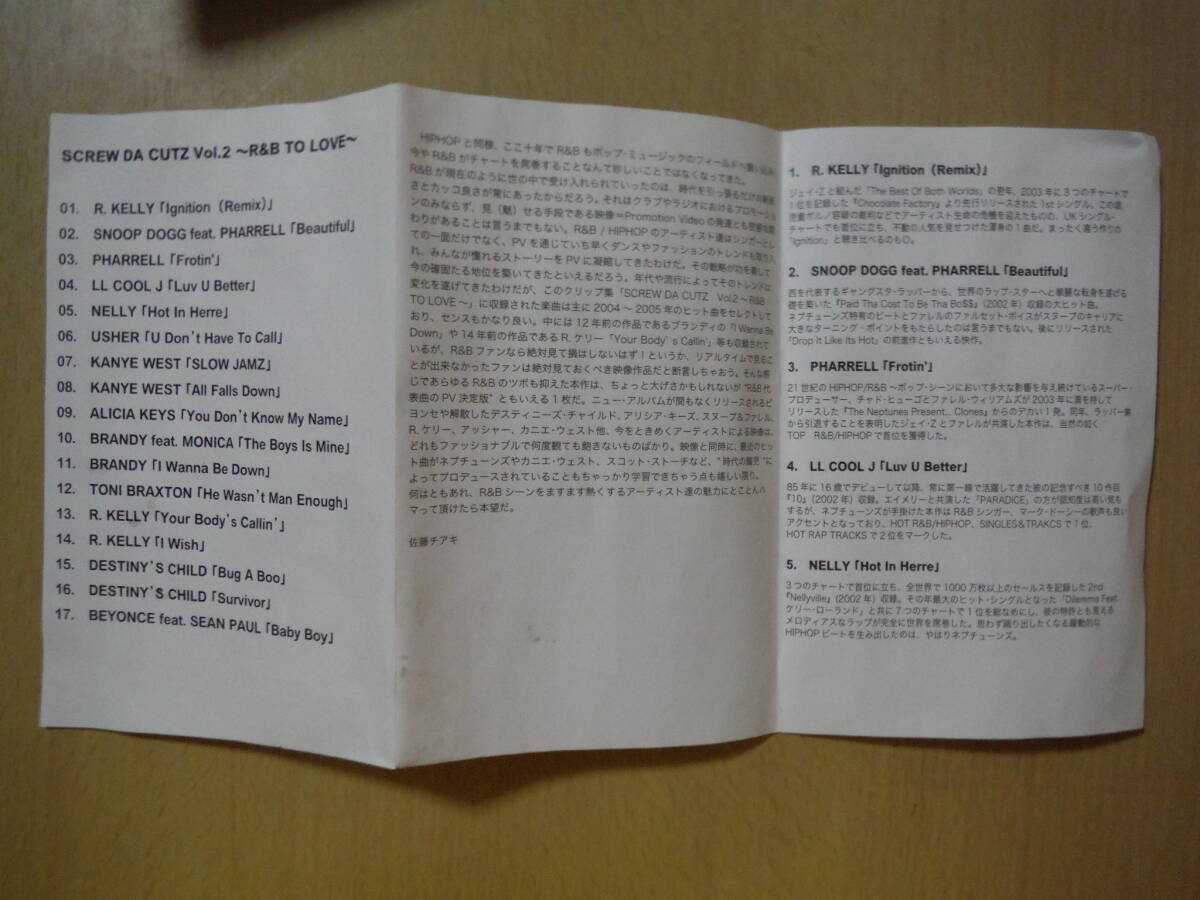 SCREW DA CUTZ Vol.2 ～R&B TO LOVE～
01. R. KELLY「Ignition（Remix）」
02. SNOOP DOGG feat. PHARRELL「Beautiful」
03. PHARRELL「Frotin'」
04. LL COOL J「Luv U Better」
05. NELLY「Hot In Herre」
06. USHER「U Don't Have To Call」
07. KANYE WEST「SLOW JAMZ」
08. KANYE WEST「All Falls Down」
09. ALICIA KEYS「You Don't Know My Name」
10. BRANDY feat. MONICA「The Boys Is Mine」
11. BRANDY「I Wanna Be Down」
12. TONI BRAXTON「He Wasn't Man Enough」
13. R. KELLY「Your Body's Callin'」
14. R. KELLY「I Wish」
15. DESTINY'S CHILD「Bug A Boo」
16. DESTINY'S CHILD「Survivor」
17. BEYONCE feat. SEAN PAUL「Baby Boy」
HIPHOPと同様、ここ十年でR&Bもポップ・ミュージックのフィールドへ
今やR&Bがチャートを席巻することなんて珍しいことではなくなってきた。
R&Bが現在のように世の中で受け入れられていったのは、時代を引っ張るだけの
さとカッコ良さが常にあったからだろう。それはクラブやラジオにおけるプロモーショ
ンのみならず、見（魅）せる手段である映像＝Promotion Videoの発達とも密接な関
わりがあることは言うまでもない。R&B / HIPHOPのアーティスト達はシンガーとし
ての一面だけでなく、PVを通じていち早くダンスやファッションのトレンドも取り入
れ、みんなが憧れるストーリーをPVに凝縮してきたわけだ。その戦略が功を奏して
今の確固たる地位を築いてきたといえるだろう。年代や流行によってそのトレンドは
変化を遂げてきたわけだが、このクリップ集「SCREW DA CUTZ Vol.2～R&B
TO LOVE～」に収録された楽曲は主に2004～2005年のヒット曲をセレクトして
おり、センスもかなり良い。中には12年前の作品であるブランディの「I Wanna Be
Down」や14年前の作品であるR.ケリー「Your Body's Callin'」等も収録されて
いるが、R&Bファンなら絶対見て損はしないはず！というか、リアルタイムで見るこ
とが出来なかったファンは絶対見ておくべき映像作品だと断言しちゃおう。そんな感
じであらゆるR&Bのツボも抑えた本作は、ちょっと大げさかもしれないが"R&B代
表曲のPV決定版"ともいえる1枚だ。ニュー・アルバムが間もなくリリースされるビ
ヨンセや解散したデスティニーズ・チャイルド、アリシア・キーズ、スヌープ&ファレル、
R.ケリー、アッシャー、カニエ・ウェスト他、今をときめくアーティストによる映像は、
どれもファッショナブルで何度観ても飽きないものばかり。映像と同時に、最近のヒッ
ト曲がネプチューンズやカニエ・ウェスト、スコット・ストーチなど、"時代の寵児"に
よってプロデュースされていることもちゃっかり学習できちゃう点も嬉しい限り。
何はともあれ、R&Bシーンをますます熱くするアーティスト達の魅力にとことんハ
マって頂けたら本望だ。
佐藤チアキ
1. R. KELLY「Ignition（Remix）」
ジェイ・Zと組んだ『The Best Of Both Worlds』の翌年、2003年に3つのチャートで
1位を記録した『Chocolate Factory』より先行リリースされた1stシングル。この頃、
児童ポルノ容疑の裁判などでアーティスト生命の危機を迎えたものの、UKシングル・
チャートでも首位に立ち、不動の人気を見せつけた渾身の1曲だ。まったく違う作りの
「Ignition」と聴き比べるのも◎。
2. SNOOP DOGG feat. PHARRELL「Beautiful」
西を代表するギャングスタ・ラッパーから、世界のラップ・スターへと華麗な転身を遂げる
礎を築いた『Paid Tha Cost To Be Tha Bo$$』(2002年) 収録の大ヒット曲。
ネプチューンズ特有のビートとファレルのファルセット・ボイスがスヌープのキャリアに
大きなターニング・ポイントをもたらしたのは言うまでもない。後にリリースされた
「Drop It Like Its Hot」の前進作ともいえる快作。
3. PHARRELL「Frotin'」
21世紀のHIPHOP/R&B～ポップ・シーンにおいて多大な影響を与え続けているスーパー・
プロデューサー、チャド・ヒューゴとファレル・ウィリアムズが2003年に満を持して
リリースした『The Neptunes Present... Clones』からのデカい1発。同年、ラッパー業
から引退することを表明したジェイ・Zとファレルが共演した本作は、当然の如く
TOP R&B/HIPHOPで首位を獲得した。
4. LL COOL J「Luv U Better」
85年に16歳でデビューして以降、常に第一線で活躍してきた彼の記念すべき10作目
『10』(2002年) 収録。エイメリーと共演した「PARADICE」の方が認知度は高い気も
するが、ネプチューンズが手掛けた本作はR&Bシンガー、マーク・ドーシーの歌声も良い
アクセントとなっており、HOT R&B/HIPHOP、SINGLES&TRAKCSで1位、
HOT RAP TRACKSで2位をマークした。
5. NELLY「Hot In Herre」
3つのチャートで首位に立ち、全世界で1000万枚以上のセールスを記録した2nd
『Nellyville』(2002年) 収録。その年最大のヒット・シングルとなった「Dilemma Feat.
ケリー・ローランド」と共に7つのチャートで1位を総なめにし、彼の特許とも言える
メロディアスなラップが完全に世界を席巻した。思わず踊り出したくなる躍動的な
HIPHOPビートを生み出したのは、やはりネプチューンズ。